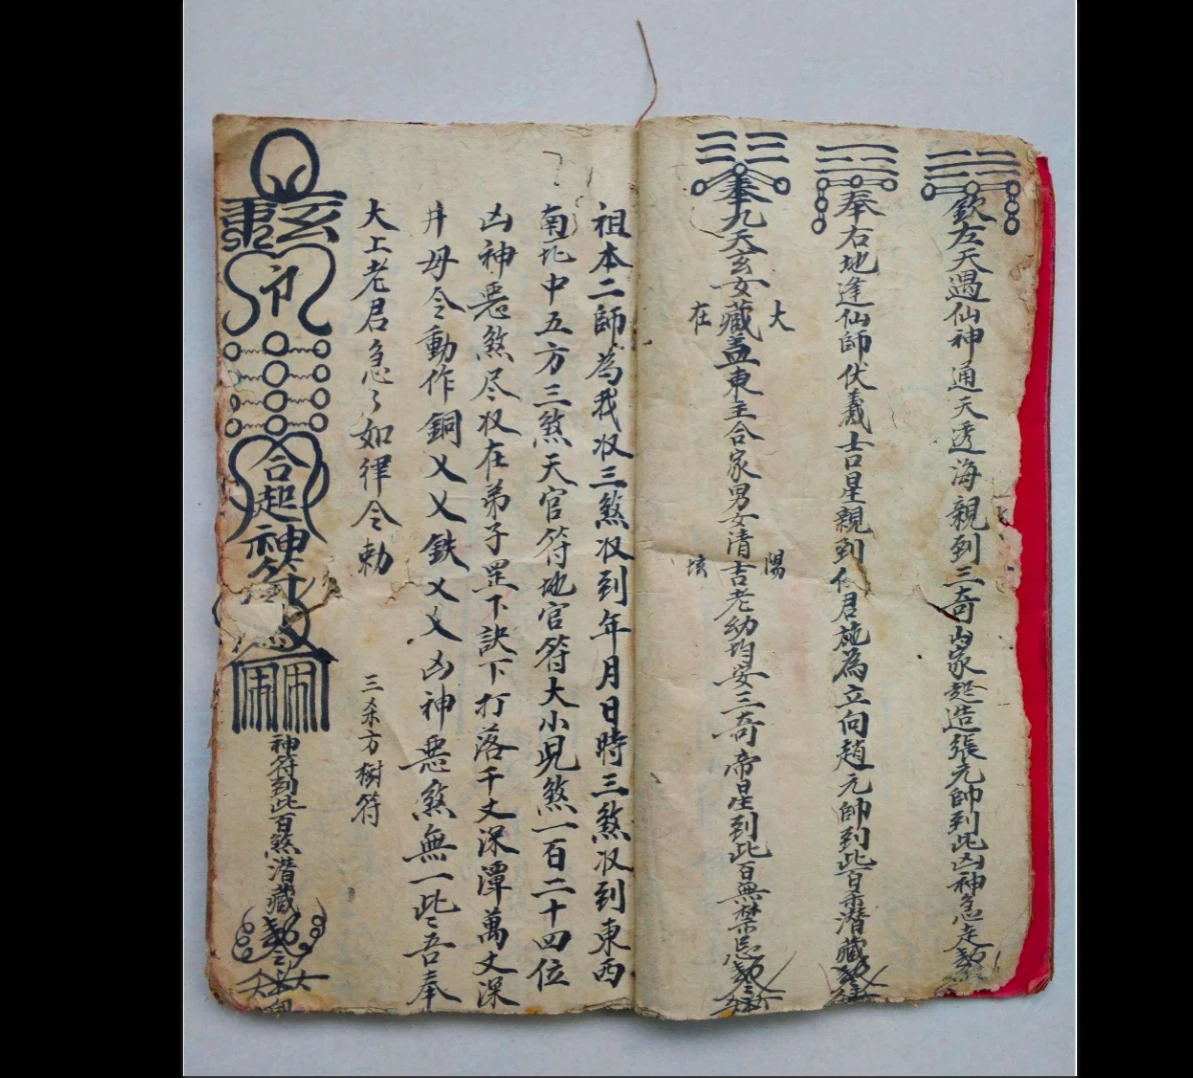 欽左天遇仙神通天透海親到三奇山家起造張元帥到此凶神急走
奉右地逢仙師伏羲吉星親到 施為立向趙元帥到此百 潛藏
奉九天玄女藏蓋東主合家男女清吉老幼均安三奇帝星到此百無禁忌
大
在
陽
祖本二師為我收三煞收到年月日時三煞收到東西
南北中五方三煞天官符地官符大小児煞一百二十四位
凶神惡煞尽收在弟子罡下訣下打落千丈深潭萬丈深
井毋令動作銅乂乂鉄乂乂凶神惡煞無一些吾奉
太上老君急〻如律令勅
三杀方樹符
合起神符
神符到此百煞潛藏